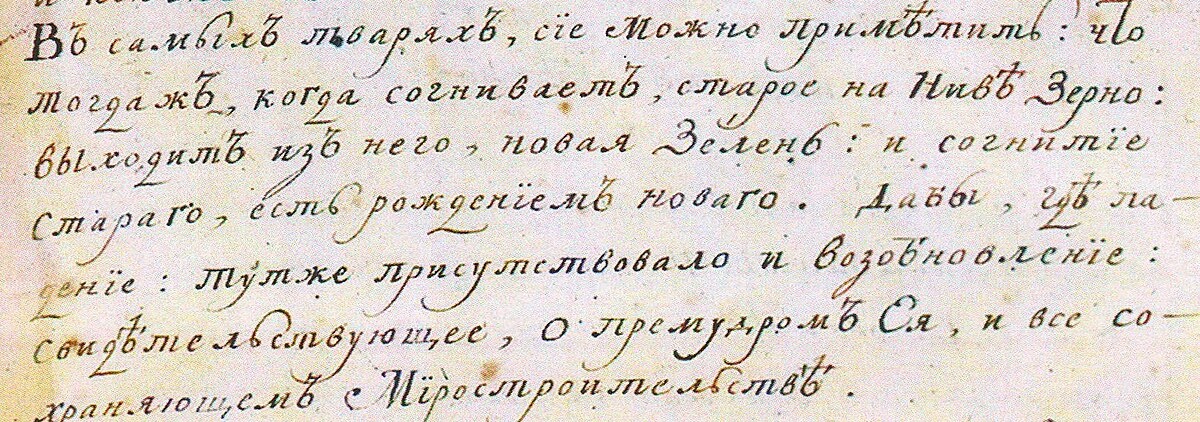 Въ самыхъ тваряхъ, сїе можно примѣтить: что
тогдажъ, когда согниваетъ, старое на Нивѣ Зерно:
выходитъ изъ него, новая Зелень: и согнитїе
стараго, есть рожденїемъ новаго. Дабы, гдѣ па-
денїе: тутже присутствовало и возобновленїе:
свидѣтельствующее, о премудромъ Ея, и все со-
храняющемъ Мїростроительствѣ.